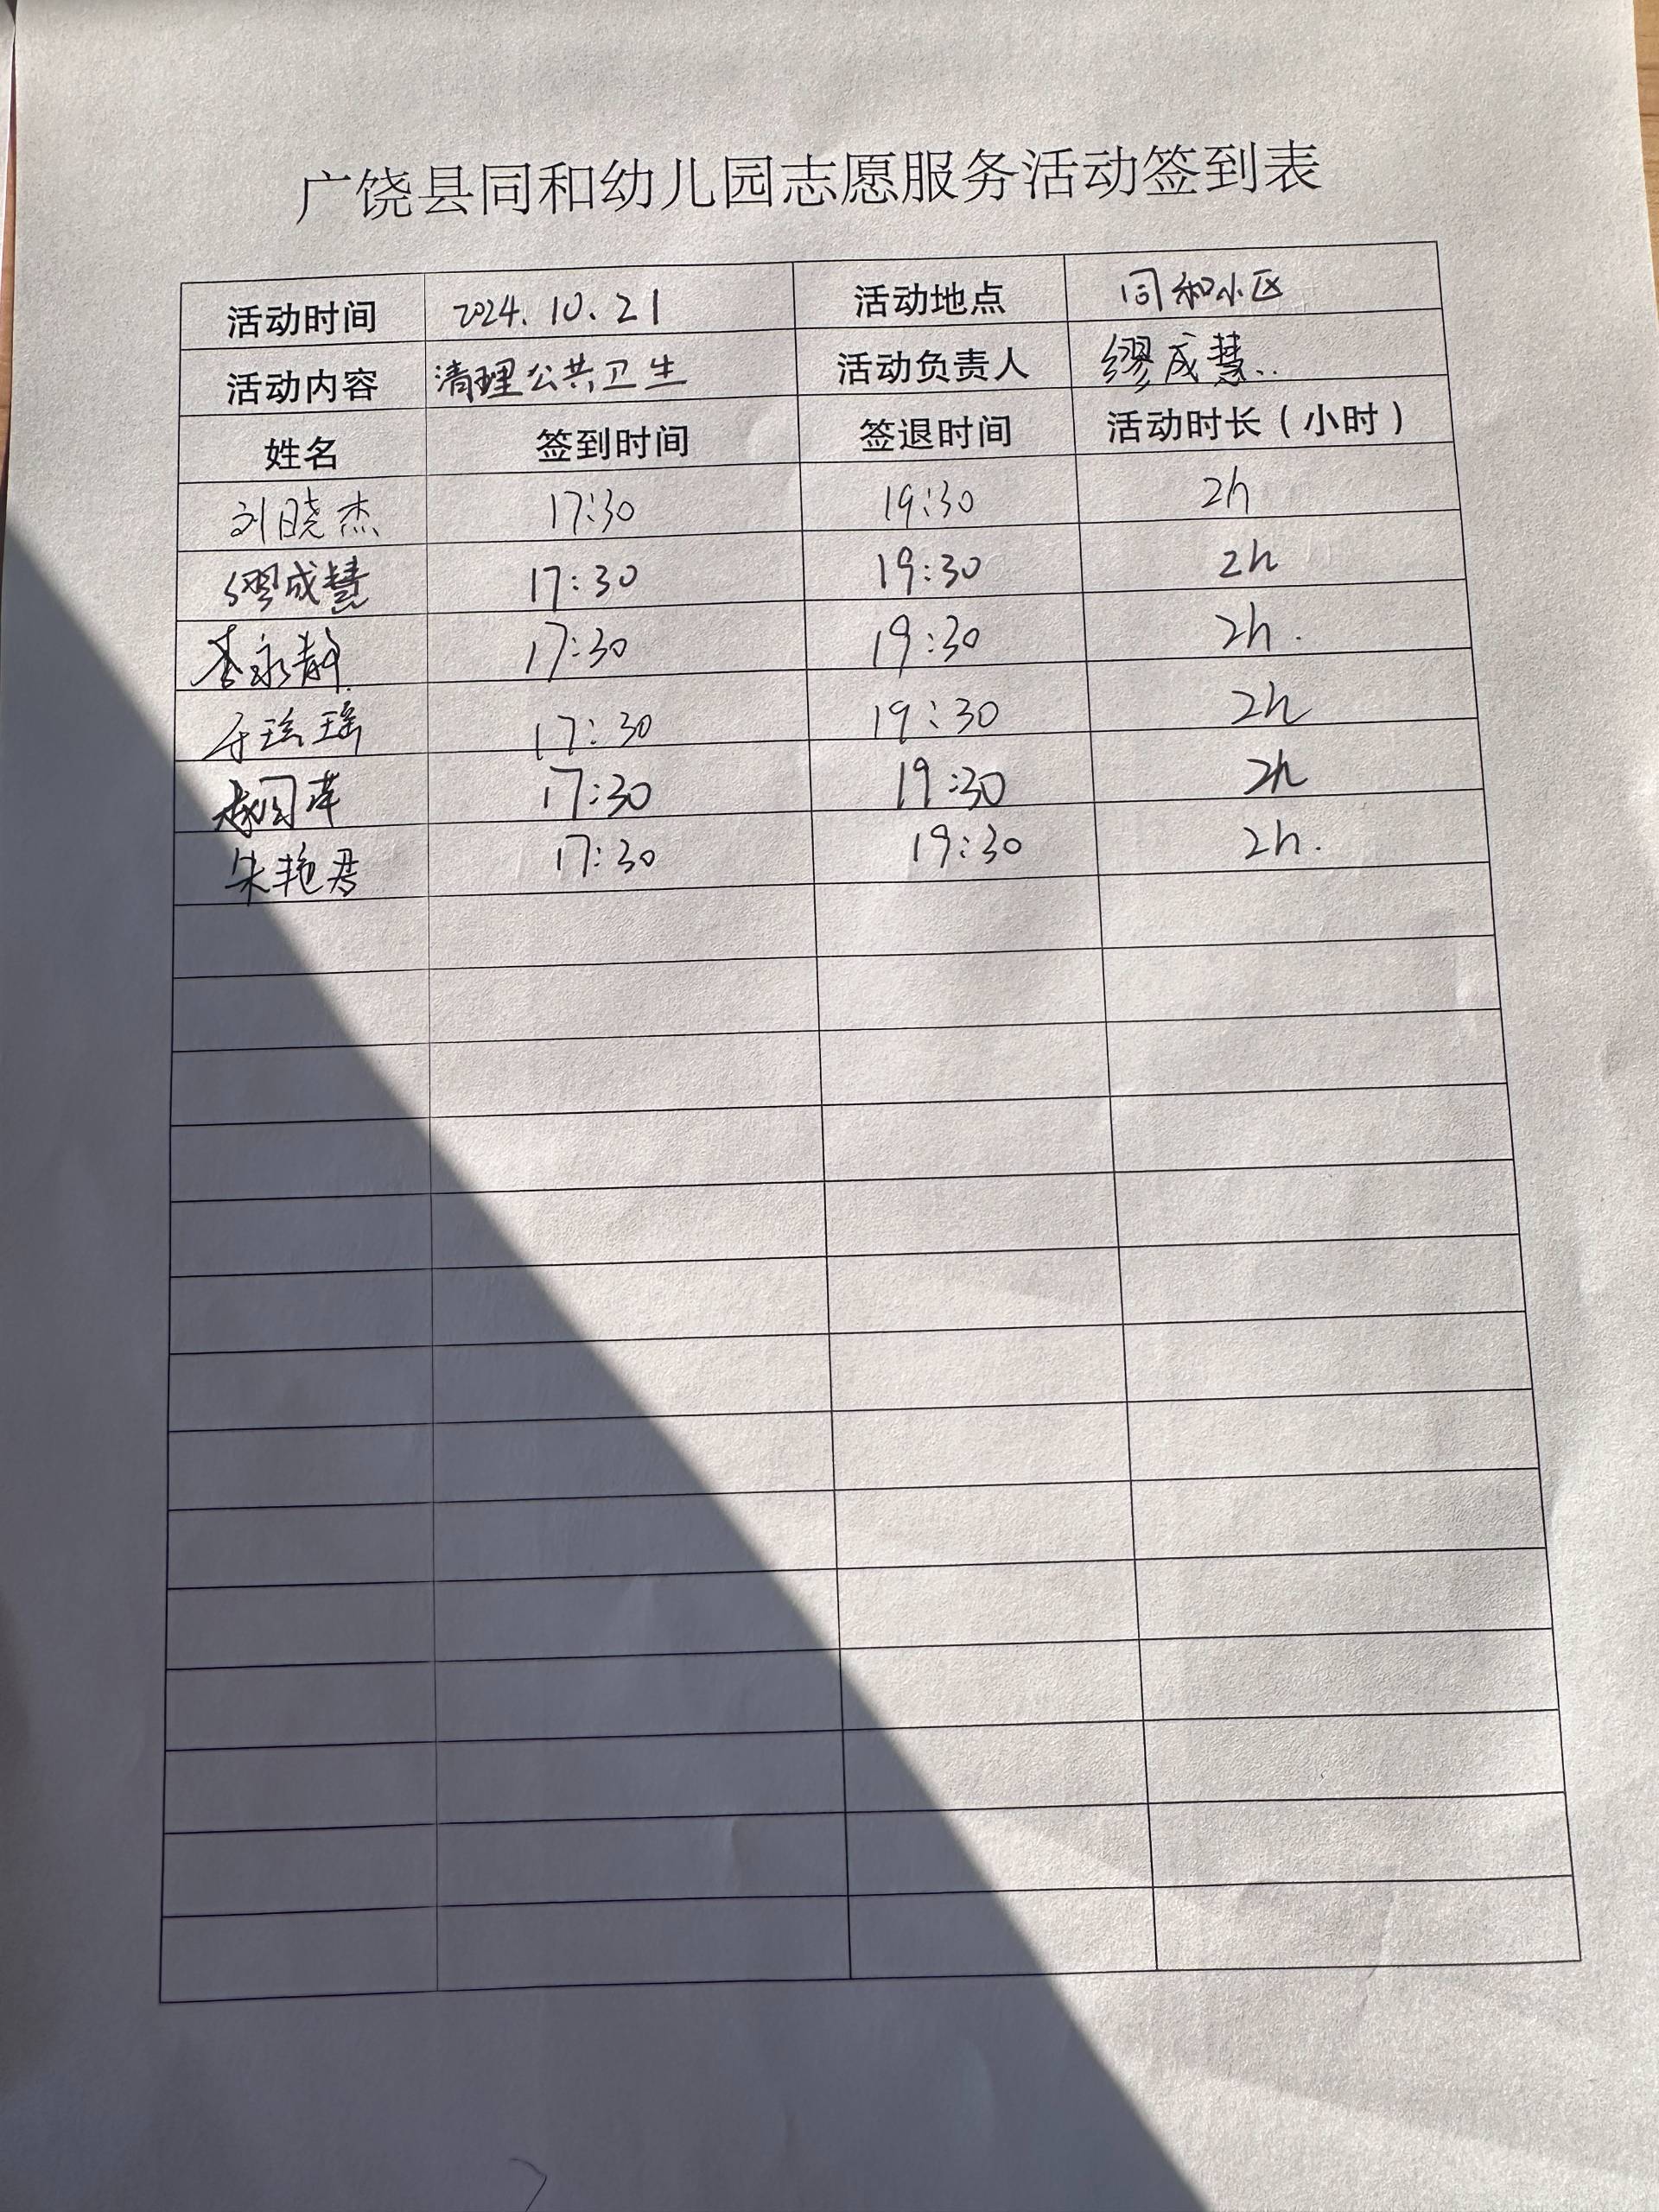 广饶县同和幼儿园志愿服务活动签到表
活动时间 2024.10.21 活动地点 同和小区
活动内容 清理公共卫生 活动负责人 缪成慧..
姓名 签到时间 签退时间 活动时长（小时）
刘晓杰 17:30 19:30 2h
缪成慧 17:30 19:30 2h
李永静. 17:30 19:30 2h.
17:30 19:30 2h
17:30 19:30 2h
朱艳君 17:30 19:30 2h.